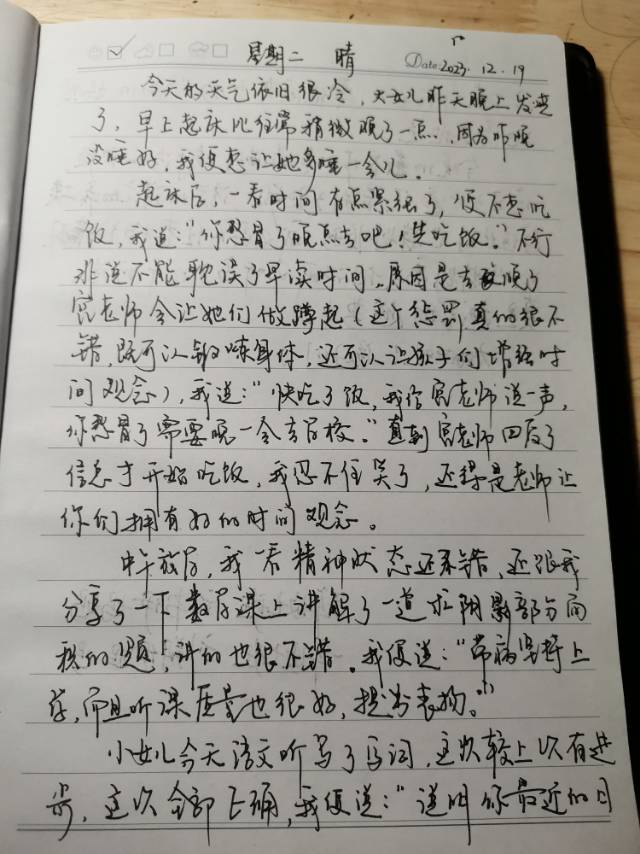 星期二 晴 Date: 2023.12.19
今天的天气依旧很冷，大女儿昨天晚上发烧
了，早上起床比往常稍微晚了一点，因为昨晚
没睡好，我便想让她多睡一会儿。
起床后，一看时间有点紧张了，便不想吃
饭，我说：“你感冒了晚点去吧！先吃饭。”不行
非说不能耽误了早读时间，原因是去晚了
宫老师会让她们做蹲起（这个惩罚真的很不
错，既可以锻炼身体，还可以让孩子们增强时
间观念），我说：“快吃了饭，我给宫老师说一声，
你感冒了需要晚一会去学校。”直到宫老师回复了
信息才开始吃饭，我忍不住笑了，还得是老师让
你们拥有好的时间观念。
中午放学，我一看精神状态还不错，还跟我
分享了一下数学课上讲解了一道求阴影部分面
积的题，讲的也很不错。我便说：“带病坚持上
学，而且听课质量也很好，提出表扬。”
小女儿今天语文听写了写词，这次较上次有进
步，这次全部正确，我便说：“说明你最近的